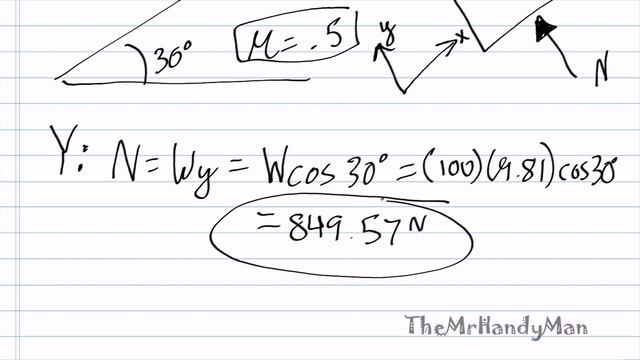 30° μ = .5 y x N
Y: N = Wy = Wcos30° = (100)(9.81)cos30°
= 849.57 N
TheMrHandyMan